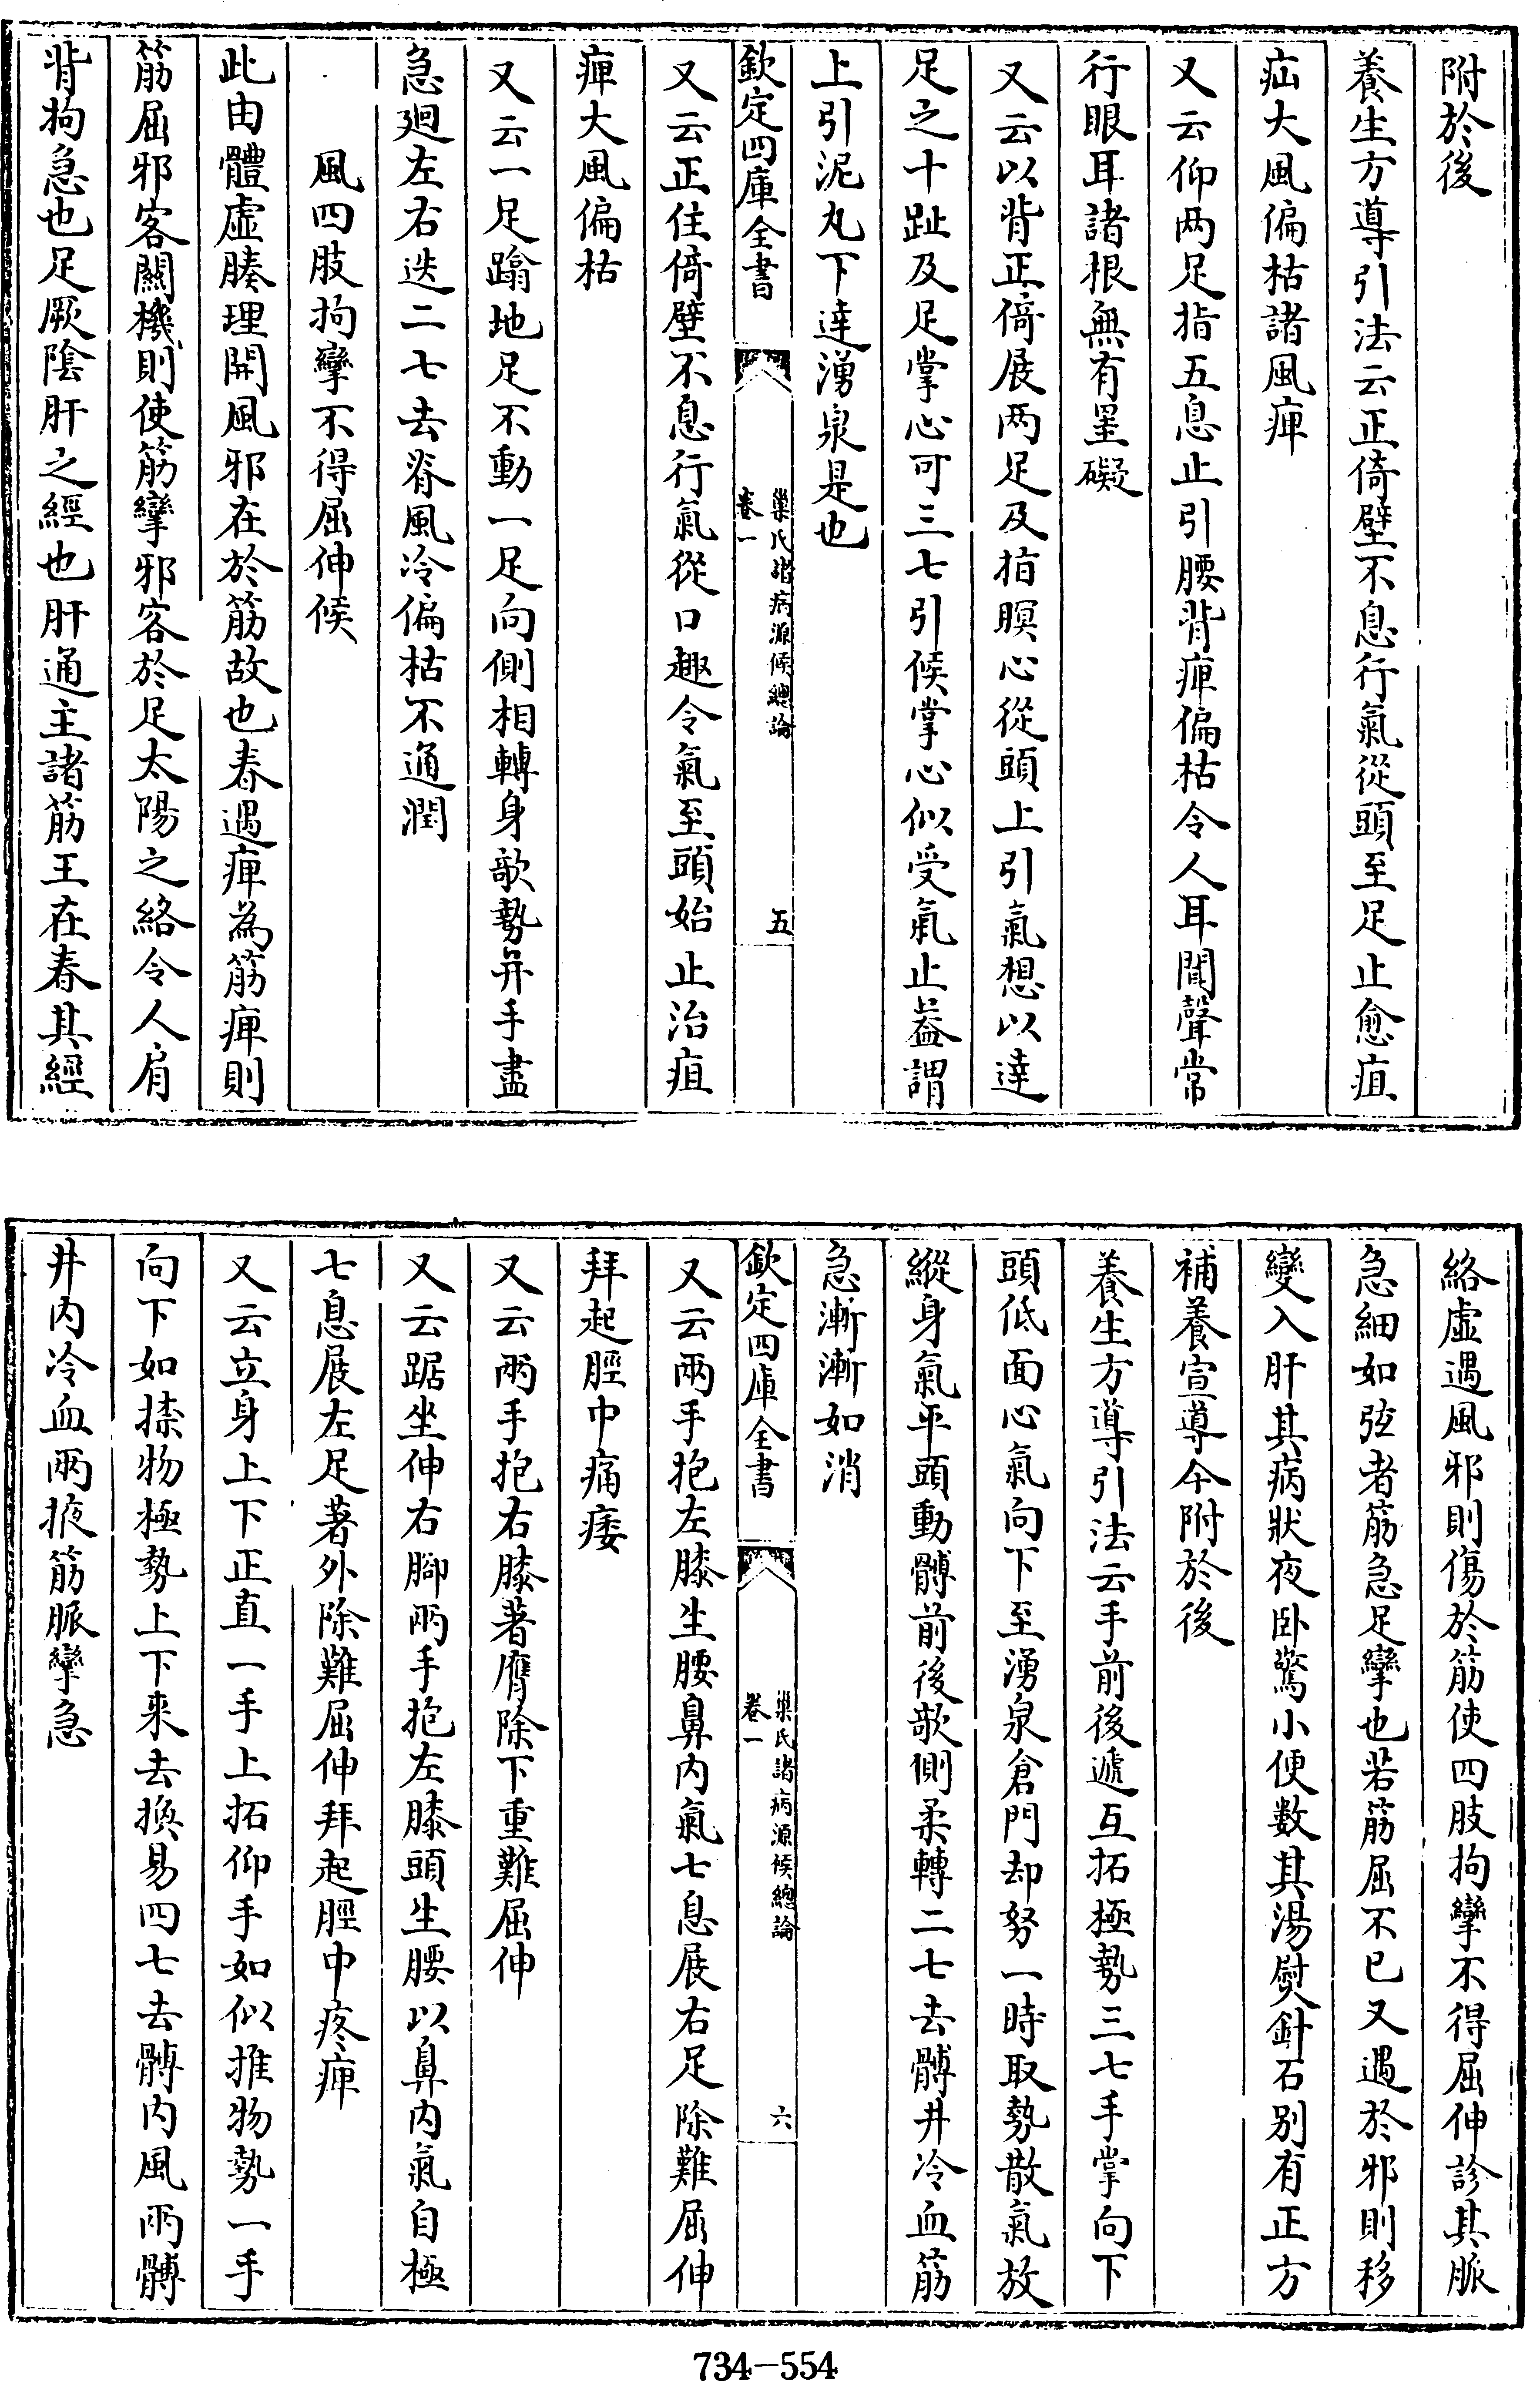 附於後
養生方導引法云正倚壁不息行氣從頭至足止愈疽
疝大風偏枯諸風痺
又云仰两足指五息止引腰背痺偏枯令人耳聞聲常
行眼耳諸根無有罣礙
又云以背正倚展两足及指瞑心從頭上引氣想以達
足之十趾及足掌心可三七引候掌心似受氣止葢謂
上引泥丸下達湧泉是也
欽定四庫全書
巢氏諸病源候總論
卷一
五
又云正住倚壁不息行氣從口趣令氣至頭始止治疽
痺大風偏枯
又云一足蹹地足不動一足向側相轉身欹勢并手盡
急廻左右迭二七去脊風冷偏枯不通潤
風四肢拘攣不得屈伸候
此由體虛腠理開風邪在於筋故也春遇痺為筋痺則
筋屈邪客闗機則使筋攣邪客於足太陽之絡令人肩
背拘急也足厥陰肝之經也肝通主諸筋王在春其經
絡虛遇風邪則傷於筋使四肢拘攣不得屈伸診其脈
急細如弦者筋急足攣也若筋屈不已又遇於邪則移
變入肝其病狀夜卧驚小便數其湯熨針石别有正方
補養宣導今附於後
養生方導引法云手前後遞互拓極勢三七手掌向下
頭低面心氣向下至湧泉倉門却努一時取勢散氣放
縱身氣平頭動髆前後欹側柔轉二七去髆井冷血筋
急漸漸如消
欽定四庫全書
巢氏諸病源候總論
卷一
六
又云兩手抱左膝生腰鼻内氣七息展右足除難屈伸
拜起脛中痛痿
又云兩手抱右膝著膺除下重難屈伸
又云踞坐伸右腳兩手抱左膝頭生腰以鼻内氣自極
七息展左足著外除難屈伸拜起脛中疼痺
又云立身上下正直一手上拓仰手如似推物勢一手
向下如捺物極勢上下来去換易四七去髆内風兩髆
井内冷血兩掖筋脈攣急
734-554